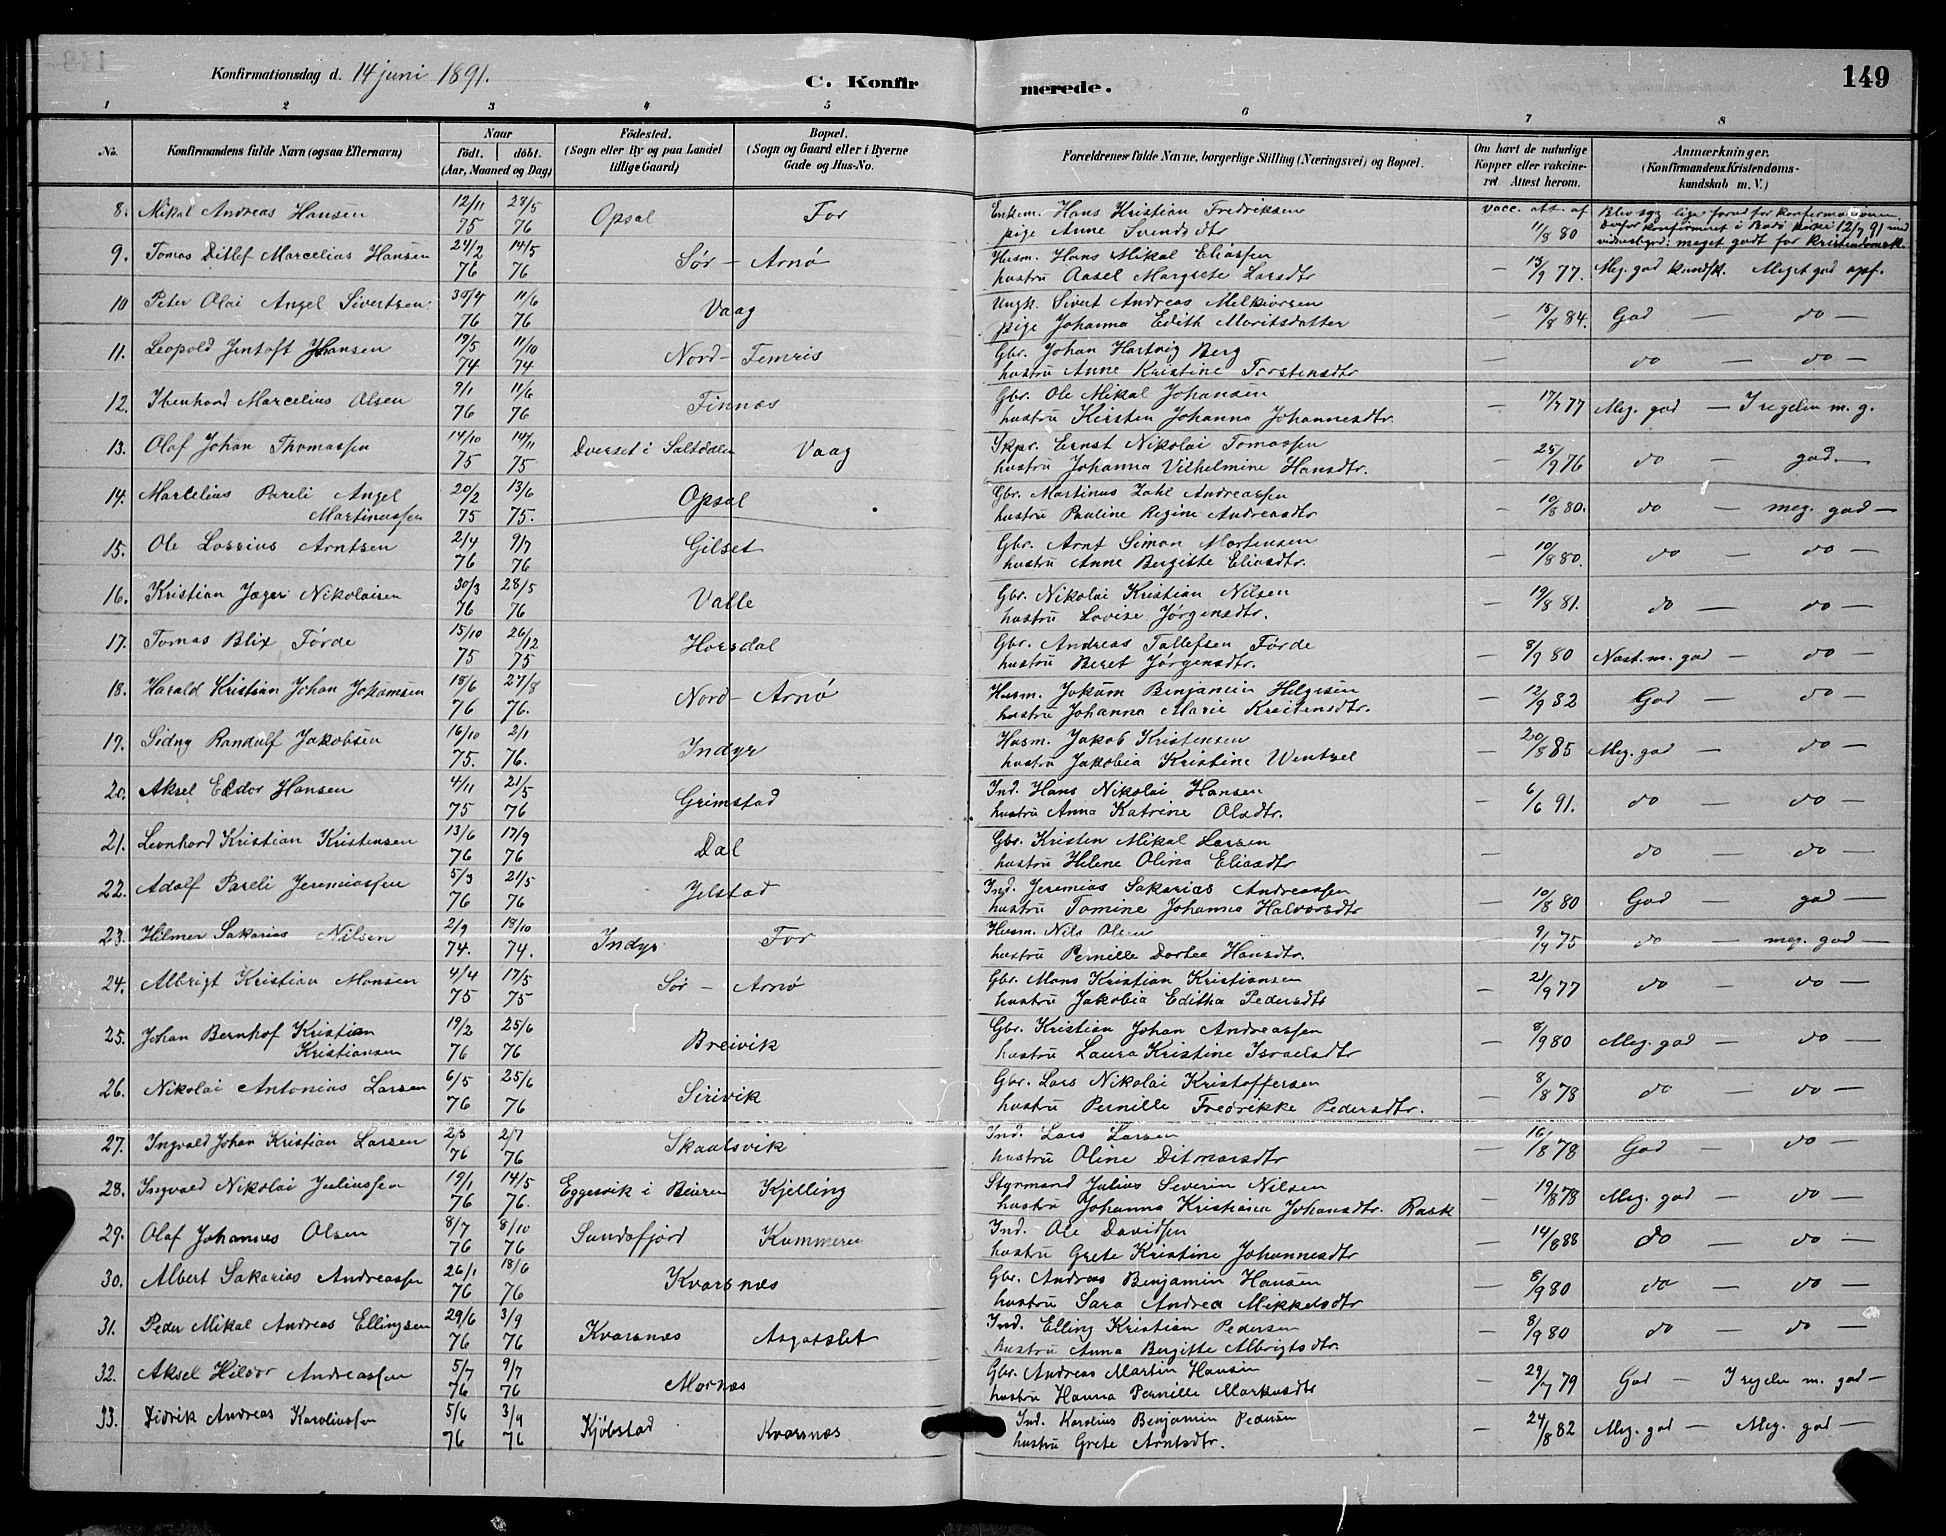 149
Konfirmationsdag d. 14 juni 1891.
C. Konfirmerede.
1 2 3 4 5 6 7 8
No. Konfirmandens fulde Navn (ogsaa Efternavn) Naar födt. döbt. (Aar, Maaned og Dag) Födested. (Sogn eller By og paa Landet tillige Gaard) Bopæl. (Sogn og Gaard eller i Byerne Gade og Hus-No. Forældrenes fulde Navne, borgerlige Stilling (Næringsvei) og Bopæl. Om havt de naturlige Kopper eller vakcineret. Attest herom. Anmærkninger. (Konfirmandens Kristendomskundskab m. V.)
8. Mikal Andreas Hansen 12/11 75 28/5 76 Opsal For Enkem. Hans Kristian Fredriksen vacc. att. af 11/8 80 Blev syg lige forud for konfirmationen.
pige Anne Svendsdtr Derfor konfirmeret i Bodö kirke 12/7 91 med vidnesbyrd: meget godt for kristendomsk.
9. Tomas Ditlef Marcelius Hansen 24/2 76 14/5 76 Sör - Arnö Husm. Hans Mikal Eliassen — 13/9 77. Meg. god kundsk. Meget god opf.
hustru Aasel Margrete Larsdtr
10 Peter Olai Angel Sivertsen 30/4 76 11/6 76 Vaag Ungk. Sivert Andreas Melkiorsen — 15/8 84. God — do —
pige Johanna Edith Moritsdatter
11. Leopold Jentoft Johansen 19/5 74 11/10 74 Nord - Femris Gbr. Johan Hartvig Berg — do — do —
hustru Anne Kristine Torstensdtr
12. Ibenhard Marcelius Olsen 9/1 76 11/6 76 Finnæs Gbr. Ole Mikal Johansen — 17/7 77 Meg. god — I regelen m. g.
hustru Kirsten Johanna Johannesdtr.
13. Olaf Johan Thomassen 14/10 75 14/11 75 Dverset i Saltdalen Vaag Skpr. Ernst Nikolai Tomassen — 25/9 76 do — god —
hustru Johanna Vilhelmine Hansdtr.
14. Marcelius Pareli Angel Martinussen 20/2 75 13/6 75. Opsal Gbr. Martinus Zahl Andreassen — 10/8 80. do — meg. god —
hustru Pauline Regine Andreasdtr
15. Ole Lossius Arntsen 2/4 76 9/7 76 Gilset Gbr. Arnt Simon Mortensen — 10/8 80. do — do —
hustru Anne Bergitte Eliasdtr.
16. Kristian Jæger Nikolaisen 30/3 76 28/5 76 Valle Gbr. Nikolai Kristian Nilsen — 19/8 81. do — do —
hustru Lovise Jörgensdtr.
17. Tomas Blix Förde 15/10 75 26/12 75 Horsdal Gbr. Andreas Tollefsen Förde — 8/9 80 Næst. m. god — do —
hustru Beret Jörgensdtr.
18. Harald Kristian Johan Jokumsen 18/6 76 27/8 76. Nord - Arnö Husm. Jokum Benjamin Helgesen — 12/9 82 God — do —
hustru Johanna Marie Kristensdtr.
19. Sidny Randulf Jakobsen 16/10 75. 2/1 76. Indyr Husm. Jakob Kristensen — 20/8 85 Meg. god do —
hustru Jakobia Kristine Wentzel
20. Aksel Eldor Hansen 4/11 75 21/5 76 Grimstad Ind. Hans Nikolai Hansen — 6/6 91. do — do —
hustru Anna Katrine Olsdtr.
21. Leonhard Kristian Kristensen 13/6 76 17/9 76 Dal Gbr. Kristen Mikal Larsen — do — do —
hustru Helene Olina Eliasdtr
22. Adolf Pareli Jeremiassen 5/3 76 21/5 76 Jelstad Ind. Jeremias Sakarias Andreassen — 10/8 80 God — god —
hustru Tomine Johanna Halvorsdtr
23. Hilmer Sakarias Nilsen 2/9 74. 18/10 74. Indyr For Husm. Nils Olsen — 9/9 75 do — meg. god —
hustru Pernille Dortea Hansdtr.
24. Albrigt Kristian Monsen 4/4 75 17/5 75 Sör - Arnö Gbr. Mons Kristian Kristiansen — 21/9 77 do — do —
hustru Jakobia Editha Pedersdtr
25. Johan Bernhof Kristian Kristiansen 19/2 76 25/6 76 Breivik Gbr. Kristian Johan Andreassen — 8/9 80 Meg. god — do —
hustru Laura Kristine Israelsdtr
26. Nikolai Antonius Larsen 6/5 76 25/6 76 Sirivik Gbr. Lars Nikolai Kristoffersen — 8/8 78 do — do —
hustru Pernille Fredrikke Pedersdtr.
27. Ingvald Johan Kristian Larsen 2/3 76 2/7 76 Skaalsvik Ind. Lars Larsen — 16/8 78 God — do —
hustru Oline Ditmarsdtr
28. Ingvald Nikolai Juliussen 19/1 76 14/5 76. Eggesvik i Beieren Kjelling Styrmand Julius Severin Nilsen — 19/8 78 Meg. god — do —
hustru Johanna Kristiana Johansdtr. Rask
29. Olaf Johannes Olsen 8/7 76 8/10 76 Sundsfjord Kummeren Ind. Ole Davidsen — 14/8 88 do — do —
hustru Grete Kristine Johannesdtr
30. Albert Sakarias Andreassen 26/1 76 18/6 76 Kvarsnæs Gbr. Andreas Benjamin Hansen — 8/9 80 do — do —
hustru Sara Andrea Mikkelsdtr
31. Peder Mikal Andreas Ellingsen 29/6 76 3/9 76 Kvarsnæs Asgotslet Ind. Elling Kristian Pedersen — 8/9 80 do — do —
hustru Anna Bergitte Albrigtsdtr.
32. Aksel Hildor Andreassen 5/7 76 9/7 76 Mornæs Gbr. Andreas Martin Hansen — 29/7 79 God — I regelen m. god —
hustru Hanna Pernille Markusdtr
33. Didrik Andreas Karoliussen 5/6 76 3/9 76 Kjöbstad Kvarsnæs Ind. Karolius Benjamin Pedersen — 24/8 82 Meg. god — Meg. god —
hustru Grete Arntsdtr.